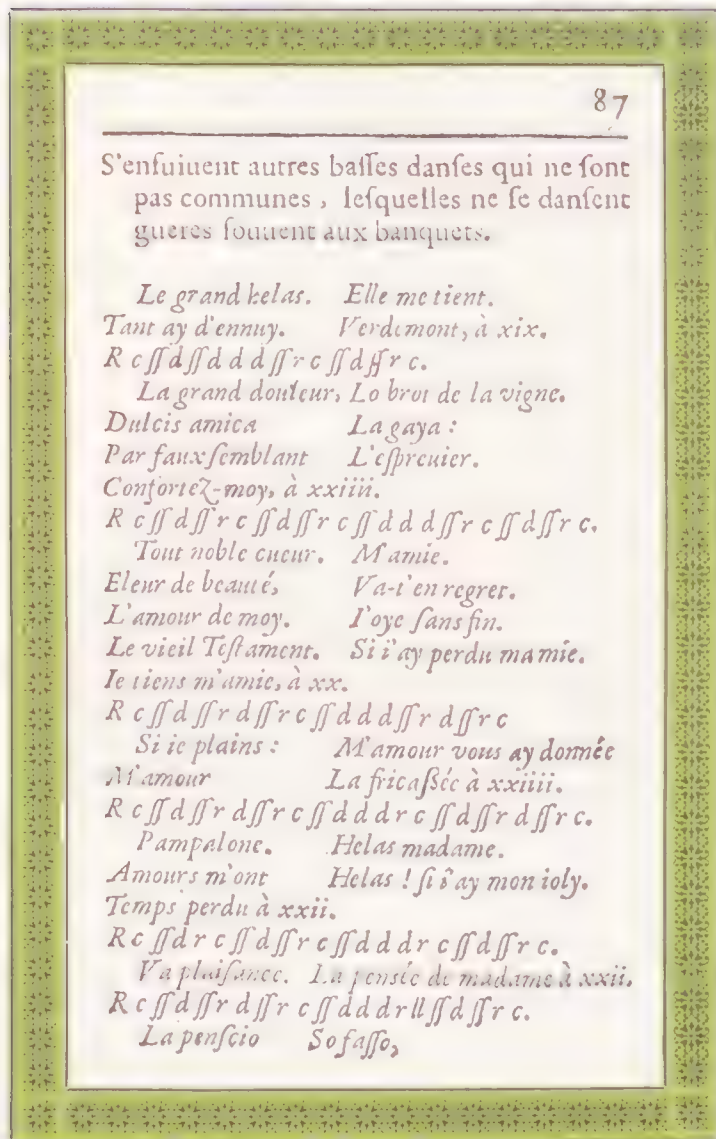 87
S'enſuiuent autres baſſes danſes qui ne ſont
pas communes, leſquelles ne ſe danſent
gueres ſouuent aux banquets.
Le grand helas. Elle me tient.
Tant ay d'ennuy. Verdemont, à xix.
R c ſſ d ſſ d d d ſſ r c ſſ d ſſ r c.
La grand douleur, Lo brot de la vigne.
Dulcis amica La gaya :
Par faux ſemblant L'eſpreuier.
Confortez-moy, à xxiiii.
R c ſſ d ſſ r c ſſ d ſſ r c ſſ d d d ſſ r c ſſ d ſſ r c.
Tout noble cueur. M'amie.
Eleur de beauté, Va-t'en regret.
L'amour de moy. I'oye ſans fin.
Le vieil Teſtament. Si i'ay perdu ma mie.
Ie tiens m'amie, à xx.
R c ſſ d ſſ r d ſſ r c ſſ d d d ſſ r d ſſ r c
Si ie plains : M'amour vous ay donnée
M'amour La fricaßée à xxiiii.
R c ſſ d ſſ r d ſſ r c ſſ d d d r c ſſ d ſſ r d ſſ r c.
Pampalone. Helas madame.
Amours m'ont Helas ! ſi i'ay mon ioly.
Temps perdu à xxii.
R c ſſ d r c ſſ d ſſ r c ſſ d d d r c ſſ d ſſ r c.
Va plaiſance. La penſée de madame à xxii.
R c ſſ d ſſ r d ſſ r c ſſ d d d r ll ſſ d ſſ r c.
La penſcio So faſſo,